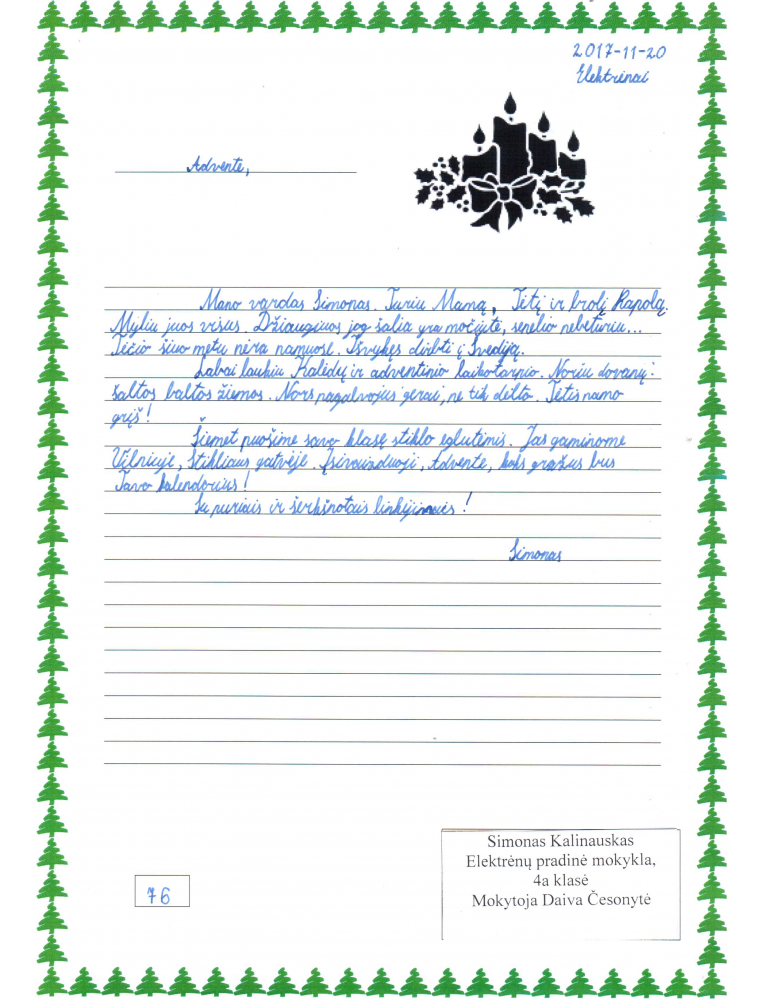 2017-11-20
Elektrėnai
Advente,
Mano vardas Simonas. Turiu Mamą, Tėtį ir brolį Rapolą.
Myliu juos visus. Džiaugiuos jog šalia yra močiutė, senelio nebeturiu...
Tėčio šiuo metu nėra namuose. Išvykęs dirbti į Švediją.
Labai laukiu Kalėdų ir adventinio laikotarpio. Noriu dovanų:
šaltos baltos žiemos. Nors pagalvojus gerai, ne tik dėlto. Tėtis namo
grįš!
Šiemet puošime savo klasę stiklo eglutėmis. Jas gaminome
Vilniuje, Stikliaus gatvėje. Įsivaizduoji, Advente, koks gražus bus
Tavo kalendorius!
Su puriais ir šerkšnotais linkėjimais!
Simonas
76
Simonas Kalinauskas
Elektrėnų pradinė mokykla,
4a klasė
Mokytoja Daiva Česonytė